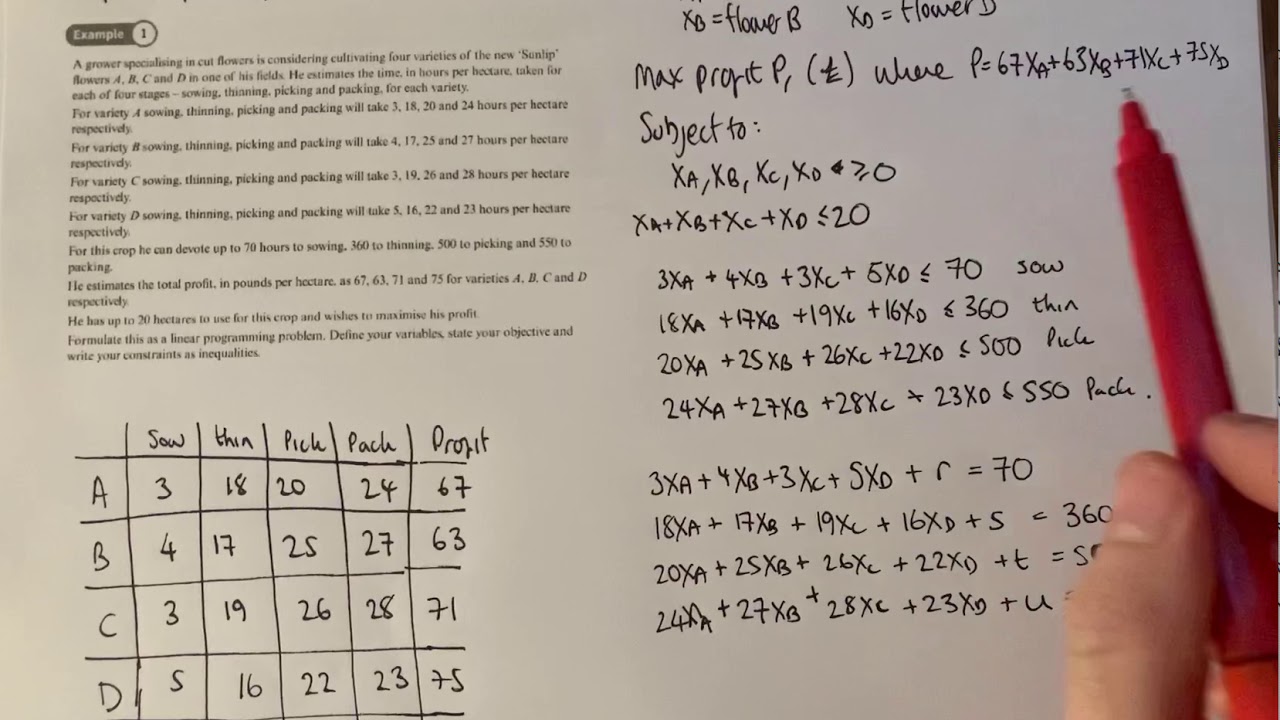 Example 1
A grower specialising in cut flowers is considering cultivating four varieties of the new 'Sunlip'
flowers A, B, C and D in one of his fields. He estimates the time, in hours per hectare, taken for
each of four stages – sowing, thinning, picking and packing, for each variety.
For variety A sowing, thinning, picking and packing will take 3, 18, 20 and 24 hours per hectare
respectively.
For variety B sowing, thinning, picking and packing will take 4, 17, 25 and 27 hours per hectare
respectively.
For variety C sowing, thinning, picking and packing will take 3, 19, 26 and 28 hours per hectare
respectively.
For variety D sowing, thinning, picking and packing will take 5, 16, 22 and 23 hours per hectare
respectively.
For this crop he can devote up to 70 hours to sowing, 360 to thinning, 500 to picking and 550 to
packing.
He estimates the total profit, in pounds per hectare, as 67, 63, 71 and 75 for varieties A, B, C and D
respectively.
He has up to 20 hectares to use for this crop and wishes to maximise his profit.
Formulate this as a linear programming problem. Define your variables, state your objective and
write your constraints as inequalities.
Sow thin Pick Pack Profit
A 3 18 20 24 67
B 4 17 25 27 63
C 3 19 26 28 71
D 5 16 22 23 75
XB = flower B XD = flower D
Max profit P, (£) where P=67XA+63XB+71XC+75XD
Subject to:
XA, XB, XC, XD ≥0
XA+XB+XC+XD ≤20
3XA + 4XB +3XC+ 5XD ≤ 70 sow
18XA +17XB +19XC +16XD ≤ 360 thin
20XA +25XB +26XC +22XD ≤ 500 Pick
24XA +27XB +28XC + 23XD ≤ 550 Pack.
3XA + 4XB+3XC+ 5XD + r = 70
18XA + 17XB + 19XC + 16XD + s = 360
20XA +25XB+ 26XC + 22XD + t = 5
24XA +27XB + 28XC +23XD + u